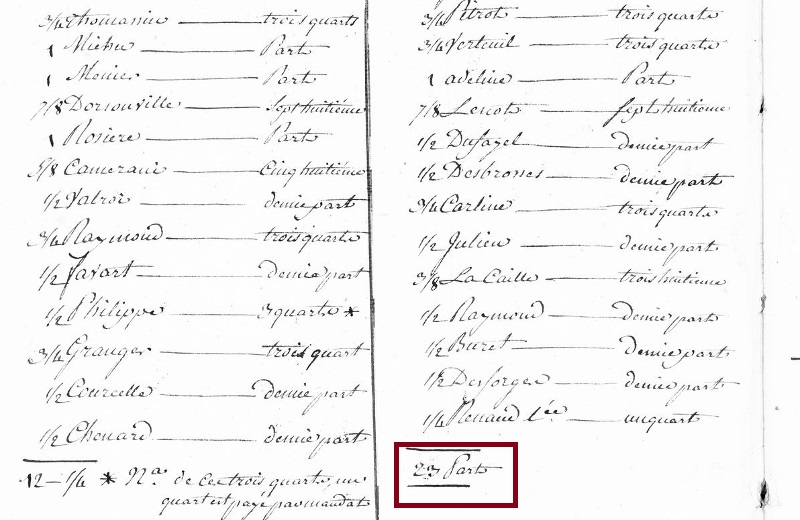 3/4 Thomassin — trois quarts
1 Michu — Part
1 Menier — Part
7/8 Dorsonville — Sept huitiéme
1 Rosiere — Part
5/8 Camerani — Cinq huitiéme
1/2 Valroi — demie part
3/4 Raymond — trois quarts
1/2 Favart — demie part
1/2 Philippe — 3 quarts *
3/4 Granger — trois quart
1/2 Courcelle — demie part
1/2 Chenard — demie part
12 – 1/4 * Na. de ces trois quarts, un
quart est payé par mandat
3/4 Pitrot — trois quarts
3/4 Verteuil — trois quarts
1 adeline — Part
7/8 Lescot — sept huitieme
1/2 Dufayel — demie part
1/2 Desbrosses — demie part
3/4 Carline — trois quarts
1/2 Julien — demie part
3/8 La Caille — trois huitieme
1/2 Raymond — demie part
1/2 Buret — demie part
1/2 Desforges — demie part
1/4 Renaud l'ée — un quart
23 Parts